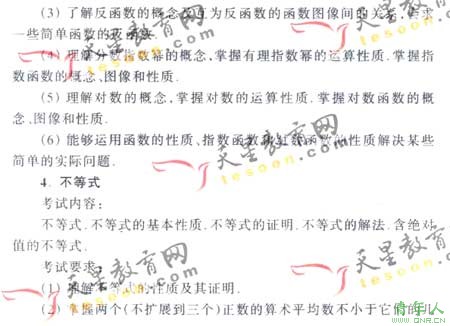 (3) 了解反函数的概念及互为反函数的函数图像间的关系,会求
一些简单函数的反函数.
(4) 理解分数指数幂的概念,掌握有理指数幂的运算性质.掌握指
数函数的概念、图像和性质.
(5) 理解对数的概念,掌握对数的运算性质.掌握对数函数的概
念、图像和性质.
(6) 能够运用函数的性质、指数函数和对数函数的性质解决某些
简单的实际问题.
4. 不等式
考试内容:
不等式.不等式的基本性质.不等式的证明.不等式的解法.含绝对
值的不等式.
考试要求:
(1) 理解不等式的性质及其证明.
(2) 掌握两个(不扩展到三个)正数的算术平均数不小于它们的几
天星教育网
tesoon.com
天星教育网
tesoon.com
天星教育网
tesoon.com
天星教育网
tesoon.com